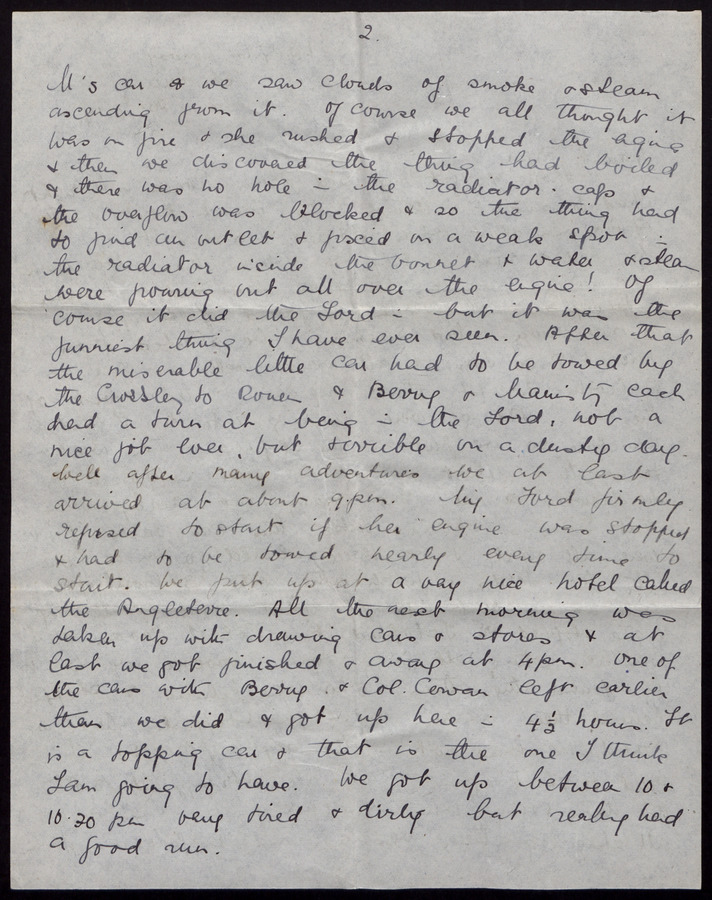 2.
M's car & we saw clouds of smoke & steam
ascending from it. Of course we all thought it
was on fire & she rushed & stopped the engine
& then we discovered the thing had boiled
& there was no hole in the radiator cap &
the overflow was blocked & so the thing had
to find an outlet & forced on a weak spot in
the radiator inside the bonnet & water & steam
were pouring out all over the engine! Of
course it did the Ford in but it was the
funniest thing I have ever seen. After that
the miserable little car had to be towed by
the Crossley to Rouen & Berry & each
had a turn at being in the Ford, not a
nice job ever, but terrible on a dusty day.
Well after many adventures we at last
arrived at about 9 pm. My Ford firmly
refused to start if her engine was stopped
& had to be towed nearly every time to
start. We put up at a very nice hotel called
the Angleterre. All the next morning was
taken up with drawing cars & stores & at
last we got finished & away at 4 pm. One of
the cars with Berry & Col. Cowan left earlier
than we did & got up here in 4½ hours. It
is a topping car & that is the one I think
I am going to have. We got up between 10 &
10.30 pm very tired & dirty but really had
a good run.